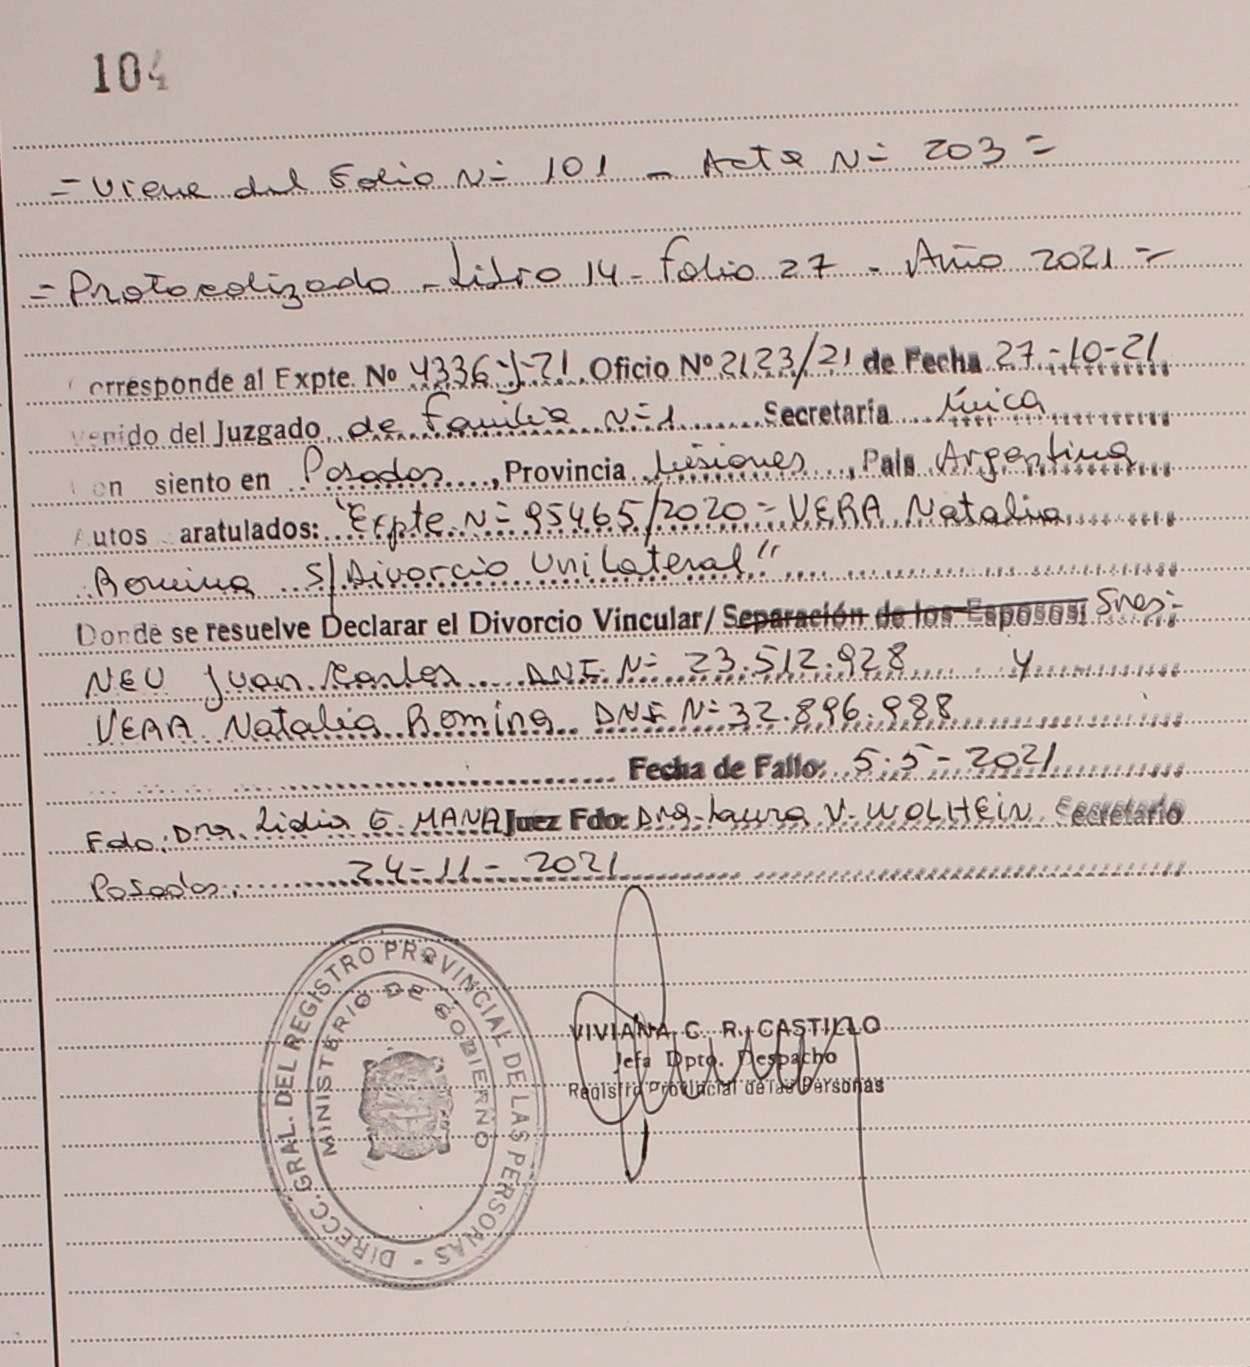 104
= Viene del Folio Nº 101 - Acta Nº 203 =
= Protocolizado - Libro 14 - Folio 27 - Año 2021 =
Corresponde al Expte. Nº 4336-J-21 Oficio Nº 2123/21 de Fecha 27-10-21
venido del Juzgado de Familia Nº 1 Secretaría Única
con siento en Posadas, Provincia Misiones, País Argentina
Autos aratulados: "Expte. Nº 95465/2020 - VERA Natalia
Romina S/Divorcio Unilateral"
Donde se resuelve Declarar el Divorcio Vincular/ Separación de los Esposos: Sres:
NEU Juan Carlos DNI Nº 23.512.928 y
VERA Natalia Romina DNI Nº 32.896.988
Fecha de Fallo: 5-5-2021
Fdo: Dra. Lidia E. MANA Juez Fdo: Dra. Laura V. WOLHEIN Secretario
Posadas: 24-11-2021
DIRECC. GRAL. DEL REGISTRO PROVINCIAL DE LAS PERSONAS -
MINISTERIO DE GOBIERNO
VIVIANA C. R. CASTILLO
Jefa Dpto. Despacho
Registro Provincial de las Personas